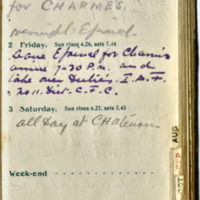 for CHARMES.
overnight - Epinal.
2 Friday. Sun rises 4.26, sets 7.46
Leave Epinal for Charmes
arrive 7-30 P.M. and
take over Duties. I.M.T.
No 11. Dist. C.F.C.
3 Saturday. Sun rises 4.27, sets 7.45
all day at CHATENOIS
Week-end
AUG